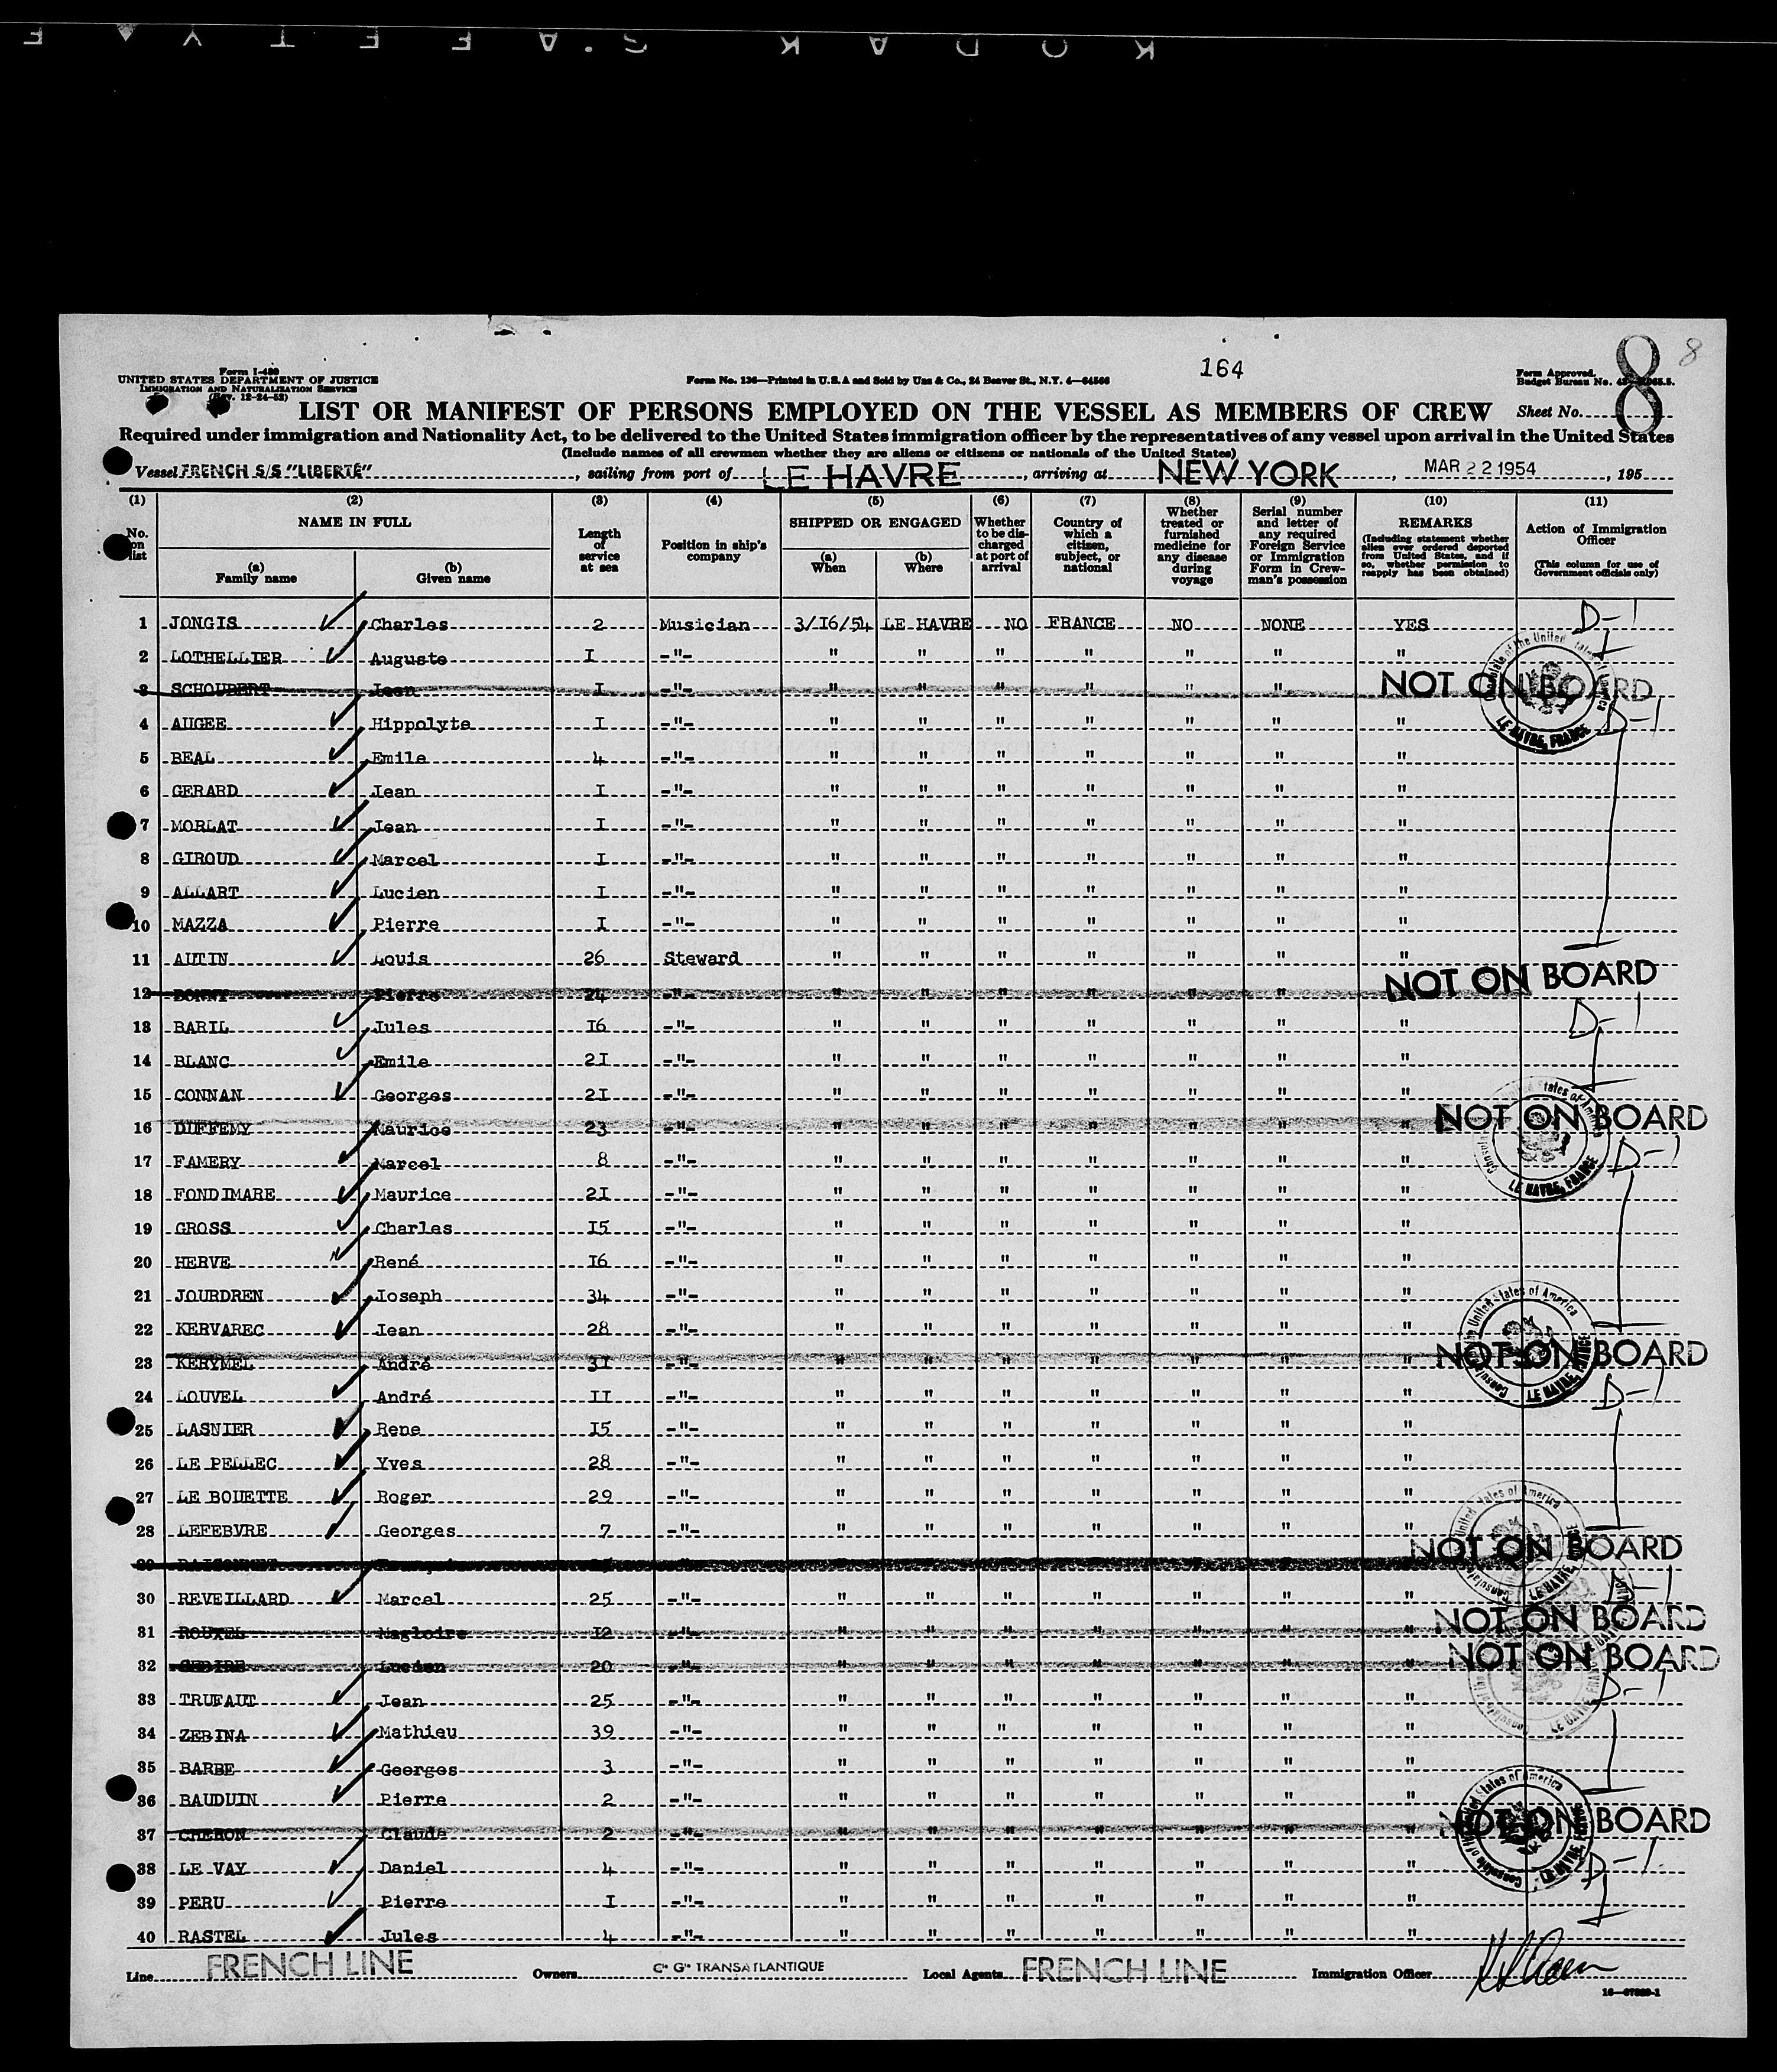 KODAK SAFETY F
164
8
8
Form I-480
UNITED STATES DEPARTMENT OF JUSTICE
IMMIGRATION AND NATURALIZATION SERVICE
(Rev. 12-24-52)
Form No. 136—Printed in U.S.A and Sold by Unz & Co., 24 Beaver St., N.Y. 4—64566
Form Approved.
Budget Bureau No.
LIST OR MANIFEST OF PERSONS EMPLOYED ON THE VESSEL AS MEMBERS OF CREW Sheet No.
Required under immigration and Nationality Act, to be delivered to the United States immigration officer by the representatives of any vessel upon arrival in the United States
(Include names of all crewmen whether they are aliens or citizens or nationals of the United States)
Vessel FRENCH S/S "LIBERTÉ", sailing from port of LE HAVRE, arriving at NEW YORK, MAR 22 1954, 195
(1) No. on list
(2) NAME IN FULL (a) Family name (b) Given name
(3) Length of service at sea
(4) Position in ship's company
(5) SHIPPED OR ENGAGED (a) When (b) Where
(6) Whether to be discharged at port of arrival
(7) Country of which a citizen, subject, or national
(8) Whether treated or furnished medicine for any disease during voyage
(9) Serial number and letter of any required Foreign Service or Immigration Form in Crewman's possession
(10) REMARKS (Including statement whether alien ever ordered deported from United States, and if so, whether permission to reapply has been obtained)
(11) Action of Immigration Officer (This column for use of Government officials only)
1 JONGIS Charles 2 Musician 3/16/54 LE HAVRE NO FRANCE NO NONE YES D-1
2 LOTHELLIER Auguste I -"- " " " " " " "
3 SCHOUBERT Jean I -"- " " " " " " NOT ON BOARD
4 AUGEE Hippolyte I -"- " " " " " " " D-1
5 BEAL Emile 4 -"- " " " " " " "
6 GERARD Jean I -"- " " " " " " "
7 MORLAT Jean I -"- " " " " " " "
8 GIROUD Marcel I -"- " " " " " " "
9 ALLART Lucien I -"- " " " " " " "
10 MAZZA Pierre I -"- " " " " " " "
11 AUTIN Louis 26 Steward " " " " " " "
12 BONNY Pierre 24 -"- " " " " " " NOT ON BOARD
13 BARIL Jules 16 -"- " " " " " " " D-1
14 BLANC Emile 2I -"- " " " " " " "
15 CONNAN Georges 2I -"- " " " " " " "
16 DUFFEMY Maurice 23 -"- " " " " " " " NOT ON BOARD
17 FAMERY Marcel 8 -"- " " " " " " " D-1
18 FONDIMARE Maurice 2I -"- " " " " " " "
19 GROSS Charles I5 -"- " " " " " " "
20 HERVE René I6 -"- " " " " " " "
21 JOURDREN Joseph 34 -"- " " " " " " "
22 KERVAREC Jean 28 -"- " " " " " " "
23 KERYMEL André 3I -"- " " " " " " " NOT ON BOARD
24 LOUVEL André II -"- " " " " " " " D-1
25 LASNIER Rene I5 -"- " " " " " " "
26 LE PELLEC Yves 28 -"- " " " " " " "
27 LE BOUETTE Roger 29 -"- " " " " " " "
28 LEFEBVRE Georges 7 -"- " " " " " " "
29 NOT ON BOARD
30 REVEILLARD Marcel 25 -"- " " " " " " " D-1
31 ROUXEL Magloire I2 -"- " " " " " " " NOT ON BOARD
32 Lucien 20 -"- " " " " " " " NOT ON BOARD
33 TRUFAUT Jean 25 -"- " " " " " " " D-1
34 ZEBINA Mathieu 39 -"- " " " " " " "
35 BARBE Georges 3 -"- " " " " " " "
36 BAUDUIN Pierre 2 -"- " " " " " " "
37 CHERON Claude 2 -"- " " " " " " " NOT ON BOARD
38 LE VAY Daniel 4 -"- " " " " " " " D-1
39 PERU Pierre I -"- " " " " " " "
40 RASTEL Jules 4 -"- " " " " " " "
Line FRENCH LINE Owners Cie Gle TRANSATLANTIQUE Local Agents FRENCH LINE Immigration Officer
Consulate of the United States of America LE HAVRE, FRANCE